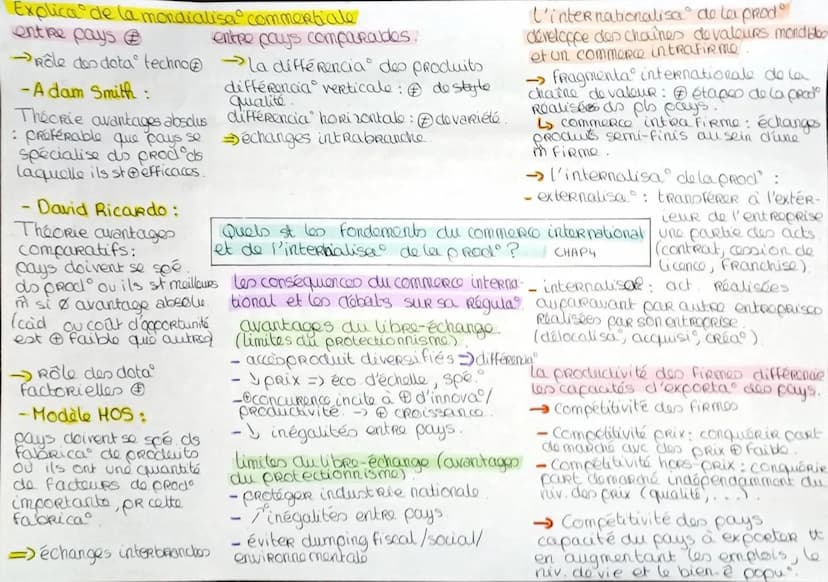 Explica° de la mondialisa° commerciale
entre pays ≠
→ Rôle des dota° techno ≠
- Adam Smith :
Théorie avantages absolus
: préférable que pays se
spécialise ds prod° ds
laquelle ils st ⊕ efficaces.
- David Ricardo :
Théorie avantages
comparatifs :
pays doivent se spé.
ds prod° ou ils st meilleurs
m̂ si Ø avantage absolue
(càd ou coût d'opportunité
est ⊕ faible que autre)
→ Rôle des dota°
factorielles ≠
- Modèle HOS :
pays doivent se spé. ds
fabrica° de produits
où ils ont une quantité
de facteurs de prod°
importante, pr cette
fabrica°
⇒ échanges interbranches
entre pays comparables.
→ la différencia° des produits
différencia° verticale : ≠ de style
qualité.
différencia° horizontale : ≠ de variété.
⇒ échanges intrabranche
Quels st les fondements du commerce international
et de l'internalisa° de la prod° ? CHAP4
les conséquences du commerce interna-
tional et les débats sur sa régula°.
avantages du libre-échange
(limites du protectionnisme)
- accès produit diversifiés ⇒ différencia°
- ↓ prix ⇒ éco. d'échelle, spé.°
- ⊕ concurence incite à ⊕ d'innova°/
productivité → ⊕ croissance.
- ↓ inégalités entre pays.
limites du libre-échange (avantages
du protectionnisme)
- protéger industrie nationale.
- ↗ inégalités entre pays
- éviter dumping fiscal/social/
environnementale
L'internationalisa° de la prod°
développe des chaînes de valeurs mondiales
et un commerce intrafirme.
→ fragmenta° internationale de la
chaîne de valeur : ≠ étapes de la prod°
réalisées ds pls pays.
↳ commerce intrafirme : échanges
produits semi-finis au sein d'une
m̂ firme.
→ l'internalisa° de la prod° :
- externalisa° : transférer à l'extér-
ieur de l'entreprise
une partie des acts.
(contrat, cession de
licence, franchise).
- internaliser : act. réalisées
auparavant par autre entreprise
réalisées par son entreprise.
(délocalisa°, acquisi°, créa°)
la productivité des firmes différencie
les capacités d'exporta° des pays.
→ compétitivité des firmes
- Compétitivité prix : conquérir part
de marché avc des prix ⊕ faible.
- Compétitivité hors-prix : conquérir
part de marché indépendamment du
niv. des prix (qualité, ...).
→ Compétitivité des pays
capacité du pays à exporter tt
en augmentant les emplois, le
niv. de vie et le bien-ê popu°.